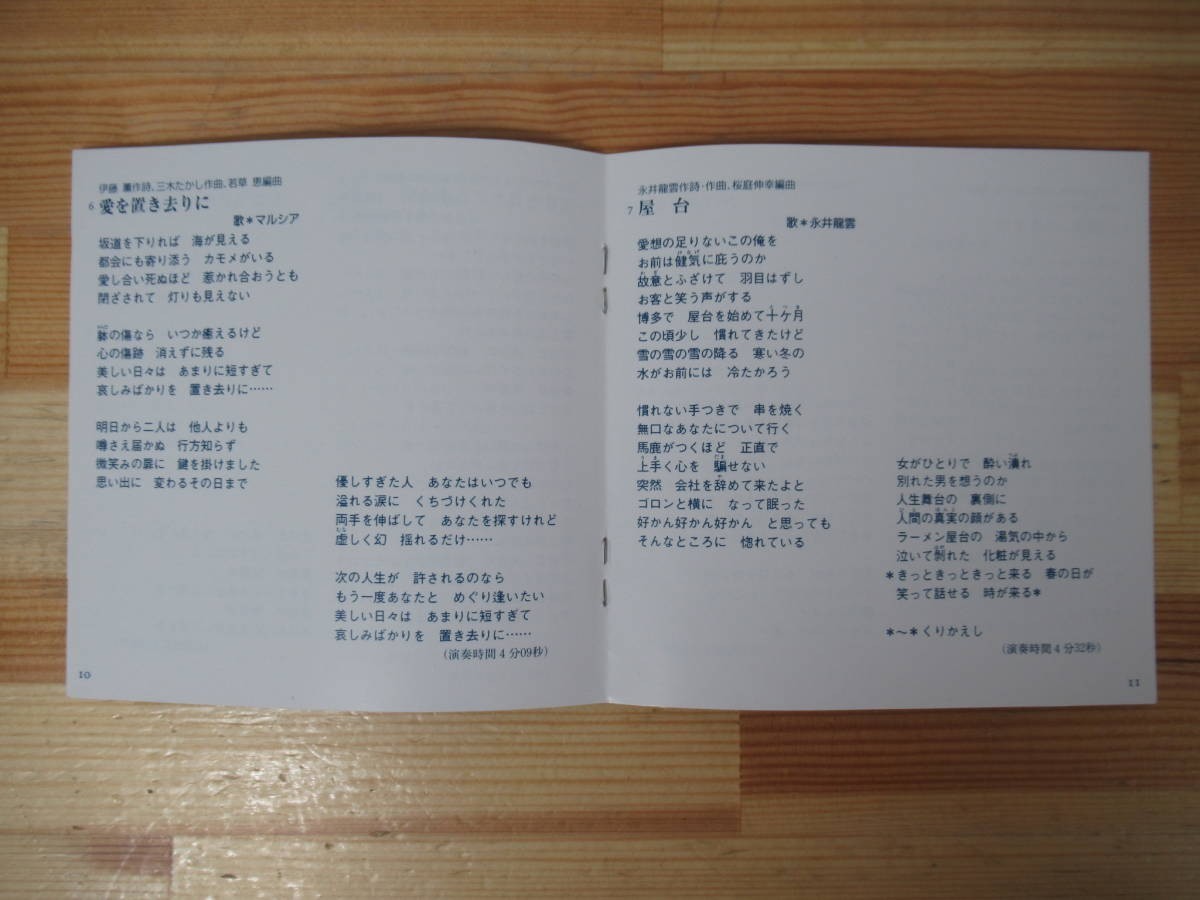 伊藤 薫作詩、三木たかし作曲、若草 恵編曲
6 愛を置き去りに
歌＊マルシア
坂道を下りれば 海が見える
都会にも寄り添う カモメがいる
愛し合い死ぬほど 惹かれ合おうとも
閉ざされて 灯りも見えない
躰の傷なら いつか癒えるけど
心の傷跡 消えずに残る
美しい日々は あまりに短すぎて
哀しみばかりを 置き去りに……
明日から二人は 他人よりも
噂さえ届かぬ 行方知らず
微笑みの扉に 鍵を掛けました
思い出に 変わるその日まで
優しすぎた人 あなたはいつでも
溢れる涙に くちづけくれた
両手を伸ばして あなたを探すけれど
虚しく幻 揺れるだけ……
次の人生が 許されるのなら
もう一度あなたと めぐり逢いたい
美しい日々は あまりに短すぎて
哀しみばかりを 置き去りに……
（演奏時間4分09秒）
10
永井龍雲作詩・作曲、桜庭伸幸編曲
7 屋台
歌＊永井龍雲
愛想の足りないこの俺を
お前は健気に庇うのか
故意とふざけて 羽目はずし
お客と笑う声がする
博多で 屋台を始めて十ケ月
この頃少し 慣れてきたけど
雪の雪の雪の降る 寒い冬の
水がお前には 冷たかろう
慣れない手つきで 串を焼く
無口なあなたについて行く
馬鹿がつくほど 正直で
上手く心を 騙せない
突然 会社を辞めて来たよと
ゴロンと横に なって眠った
好かん好かん好かん と思っても
そんなところに 惚れている
女がひとりで 酔い潰れ
別れた男を想うのか
人生舞台の 裏側に
人間の真実の顔がある
ラーメン屋台の 湯気の中から
泣いて剥れた 化粧が見える
＊きっときっときっと来る 春の日が
笑って話せる 時が来る＊
＊～＊くりかえし
（演奏時間4分32秒）
11